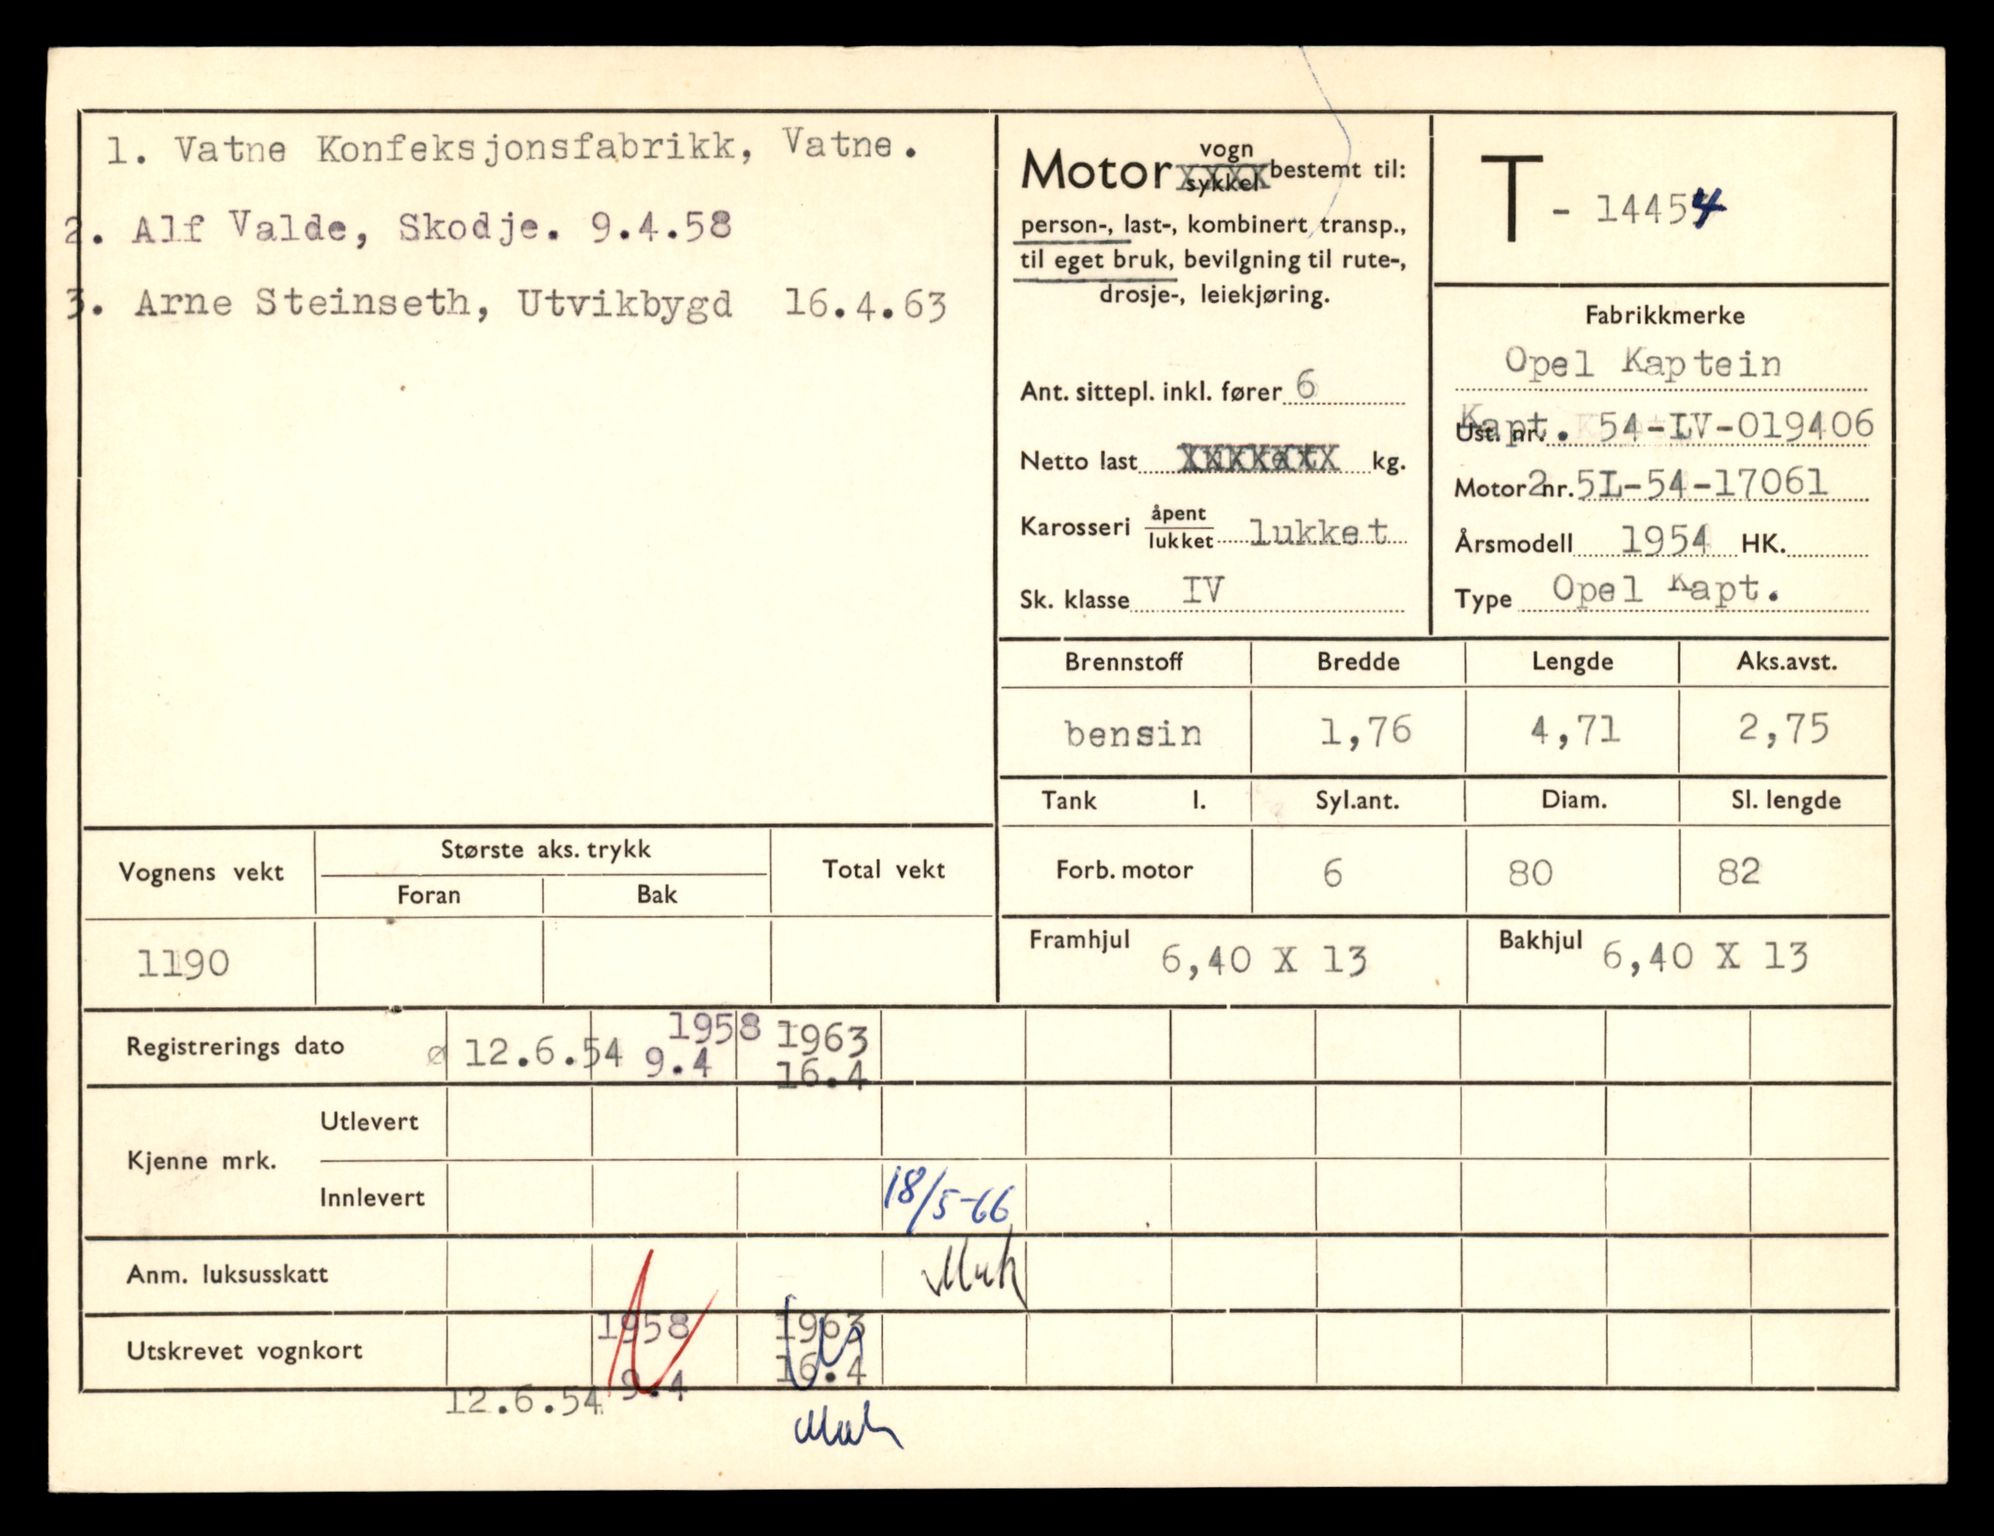 1. Vatne Konfeksjonsfabrikk, Vatne.
2. Alf Valde, Skodje. 9.4.58
3. Arne Steinseth, Utvikbygd 16.4.63
Motor vogn sykkel bestemt til:
person-, last-, kombinert transp.,
til eget bruk, bevilgning til rute-,
drosje-, leiekjøring.
Ant. sittepl. inkl. fører 6
Netto last kg.
Karosseri åpent lukket lukket
Sk. klasse IV
T - 14454
Fabrikkmerke
Opel Kaptein
Ust. nr. Kapt. 54-LV-019406
Motor nr. 2 5L-54-17061
Årsmodell 1954 HK.
Type Opel Kapt.
Brennstoff Bredde Lengde Aks.avst.
bensin 1,76 4,71 2,75
Tank l. Syl.ant. Diam. Sl. lengde
Forb. motor 6 80 82
Framhjul 6,40 X 13 Bakhjul 6,40 X 13
Vognens vekt Største aks. trykk Total vekt
Foran Bak
1190
Registrerings dato ø 12.6.54 1958 9.4 1963 16.4
Kjenne mrk.
Utlevert
Innlevert 18/5-66
Anm. luksusskatt
Utskrevet vognkort 12.6.54 1958 9.4 1963 16.4